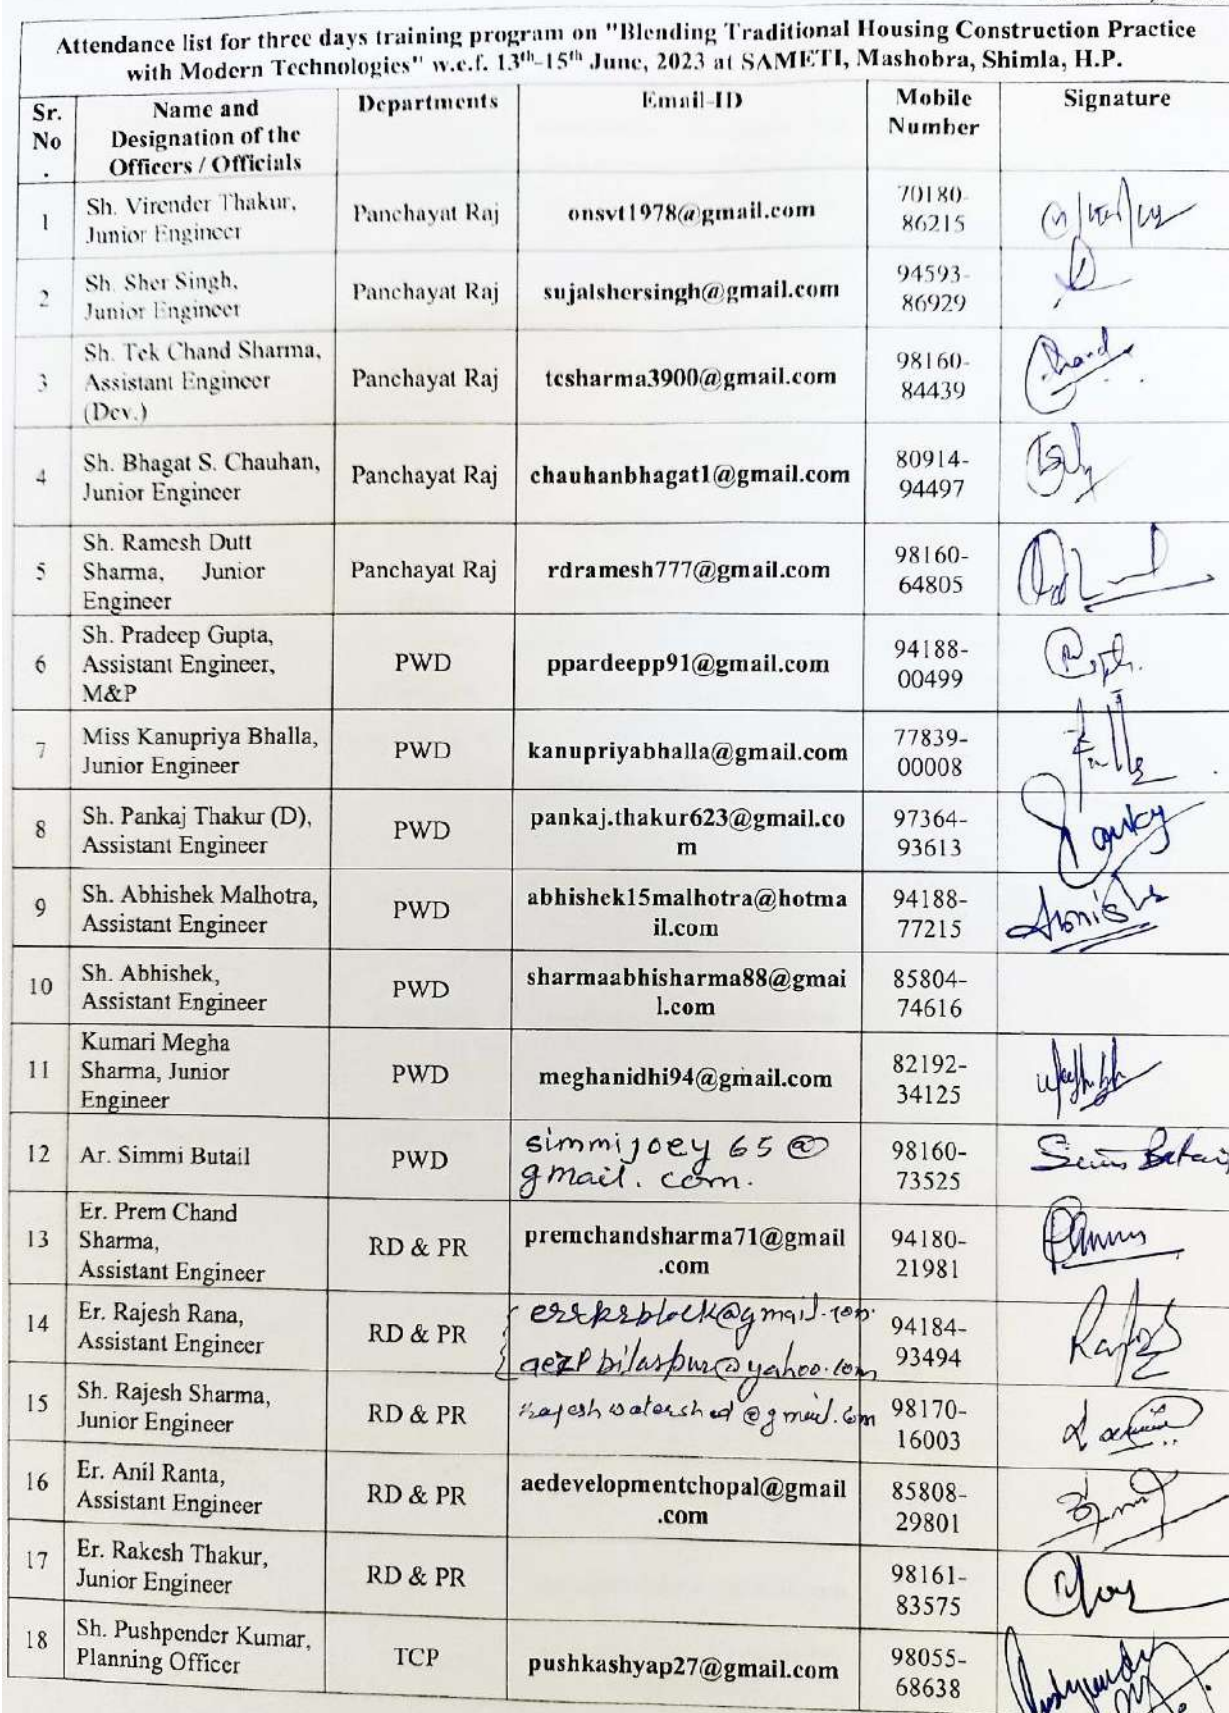 Attendance list for three days training program on "Blending Traditional Housing Construction Practice
with Modern Technologies" w.e.f. 13th-15th June, 2023 at SAMETI, Mashobra, Shimla, H.P.
Sr. No . Name and Designation of the Officers / Officials Departments Email-ID Mobile Number Signature
1 Sh. Virender Thakur, Junior Engineer Panchayat Raj onsvt1978@gmail.com 70180-86215
2 Sh. Sher Singh, Junior Engineer Panchayat Raj sujalshersingh@gmail.com 94593-86929
3 Sh. Tek Chand Sharma, Assistant Engineer (Dev.) Panchayat Raj tcsharma3900@gmail.com 98160-84439
4 Sh. Bhagat S. Chauhan, Junior Engineer Panchayat Raj chauhanbhagat1@gmail.com 80914-94497
5 Sh. Ramesh Dutt Sharma, Junior Engineer Panchayat Raj rdramesh777@gmail.com 98160-64805
6 Sh. Pradeep Gupta, Assistant Engineer, M&P PWD ppardeepp91@gmail.com 94188-00499
7 Miss Kanupriya Bhalla, Junior Engineer PWD kanupriyabhalla@gmail.com 77839-00008
8 Sh. Pankaj Thakur (D), Assistant Engineer PWD pankaj.thakur623@gmail.com 97364-93613
9 Sh. Abhishek Malhotra, Assistant Engineer PWD abhishek15malhotra@hotmail.com 94188-77215
10 Sh. Abhishek, Assistant Engineer PWD sharmaabhisharma88@gmail.com 85804-74616
11 Kumari Megha Sharma, Junior Engineer PWD meghanidhi94@gmail.com 82192-34125
12 Ar. Simmi Butail PWD simmijoey65@gmail.com. 98160-73525
13 Er. Prem Chand Sharma, Assistant Engineer RD & PR premchandsharma71@gmail.com 94180-21981
14 Er. Rajesh Rana, Assistant Engineer RD & PR 94184-93494
15 Sh. Rajesh Sharma, Junior Engineer RD & PR rajeshwatershed@gmail.com 98170-16003
16 Er. Anil Ranta, Assistant Engineer RD & PR aedevelopmentchopal@gmail.com 85808-29801
17 Er. Rakesh Thakur, Junior Engineer RD & PR 98161-83575
18 Sh. Pushpender Kumar, Planning Officer TCP pushkashyap27@gmail.com 98055-68638